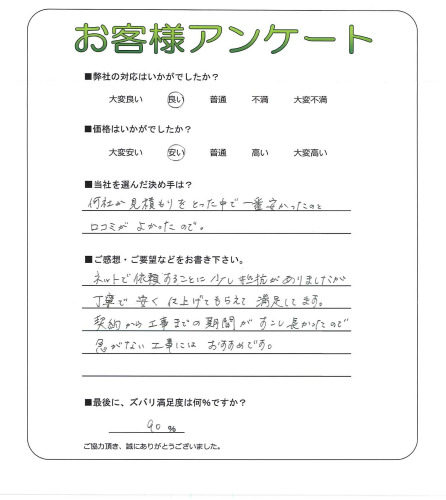 お客様アンケート
■弊社の対応はいかがでしたか？
大変良い 良い 普通 不満 大変不満
■価格はいかがでしたか？
大変安い 安い 普通 高い 大変高い
■当社を選んだ決め手は？
何社か見積もりをとった中で一番安かったのと
口コミがよかったので。
■ご感想・ご要望などをお書き下さい。
ネットで依頼することに少し抵抗がありましたが
丁寧で安く仕上げてもらえて満足してます。
契約から工事までの期間がすこし長かったので
急がない工事にはおすすめです。
■最後に、ズバリ満足度は何%ですか？
90 %
ご協力頂き、誠にありがとうございました。